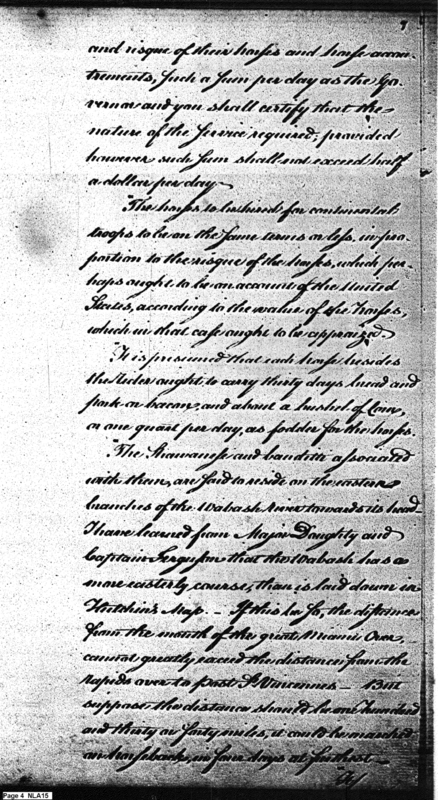 7
and risque of their horses and horse accou-
trements, such a sum per day as the Go-
vernor and you shall certify that the
nature of the service required; provided
however such sum shall not exceed half
a dollar per day.
"The horses to be hired for continental
troops to be on the same terms or less, in pro-
portion to the risque of the horses, which per-
haps ought to be on account of the United
States, according to the value of the horses,
which in that case ought to be appraized.
"It is presumed that each horse besides
the rider ought to carry thirty days bread and
pork or bacon, and about a bushel of Corn,
or one quart per day, as fodder for the horses.
"The Shawanese and banditti associated
with them, are said to reside on the eastern
branches of the Wabash River towards its head
I have learned from Major Doughty and
Captain Ferguson that the Wabash has a
more easterly course, than is laid down in
Hutchin's Map. – If this be so, the distance
from the mouth of the great Miami River
cannot greatly exceed the distance from the
rapids over to Post St. Vincennes – But
suppose the distance should be one hundred
and thirty or forty miles, it could be marched
on horseback, in four days at furthest –
Page 4 NLA15